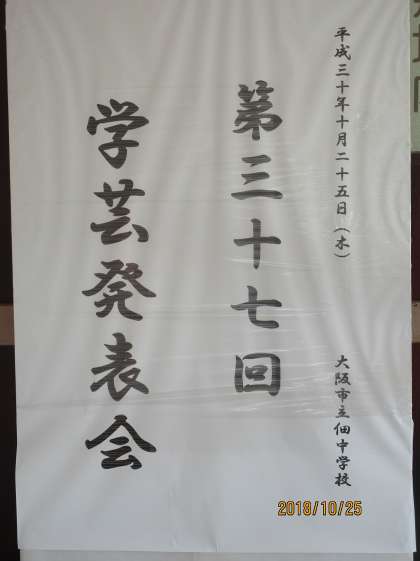 平成三十年十月二十五日（木）
大阪市立佃中学校
第三十七回
学芸発表会
2018/10/25